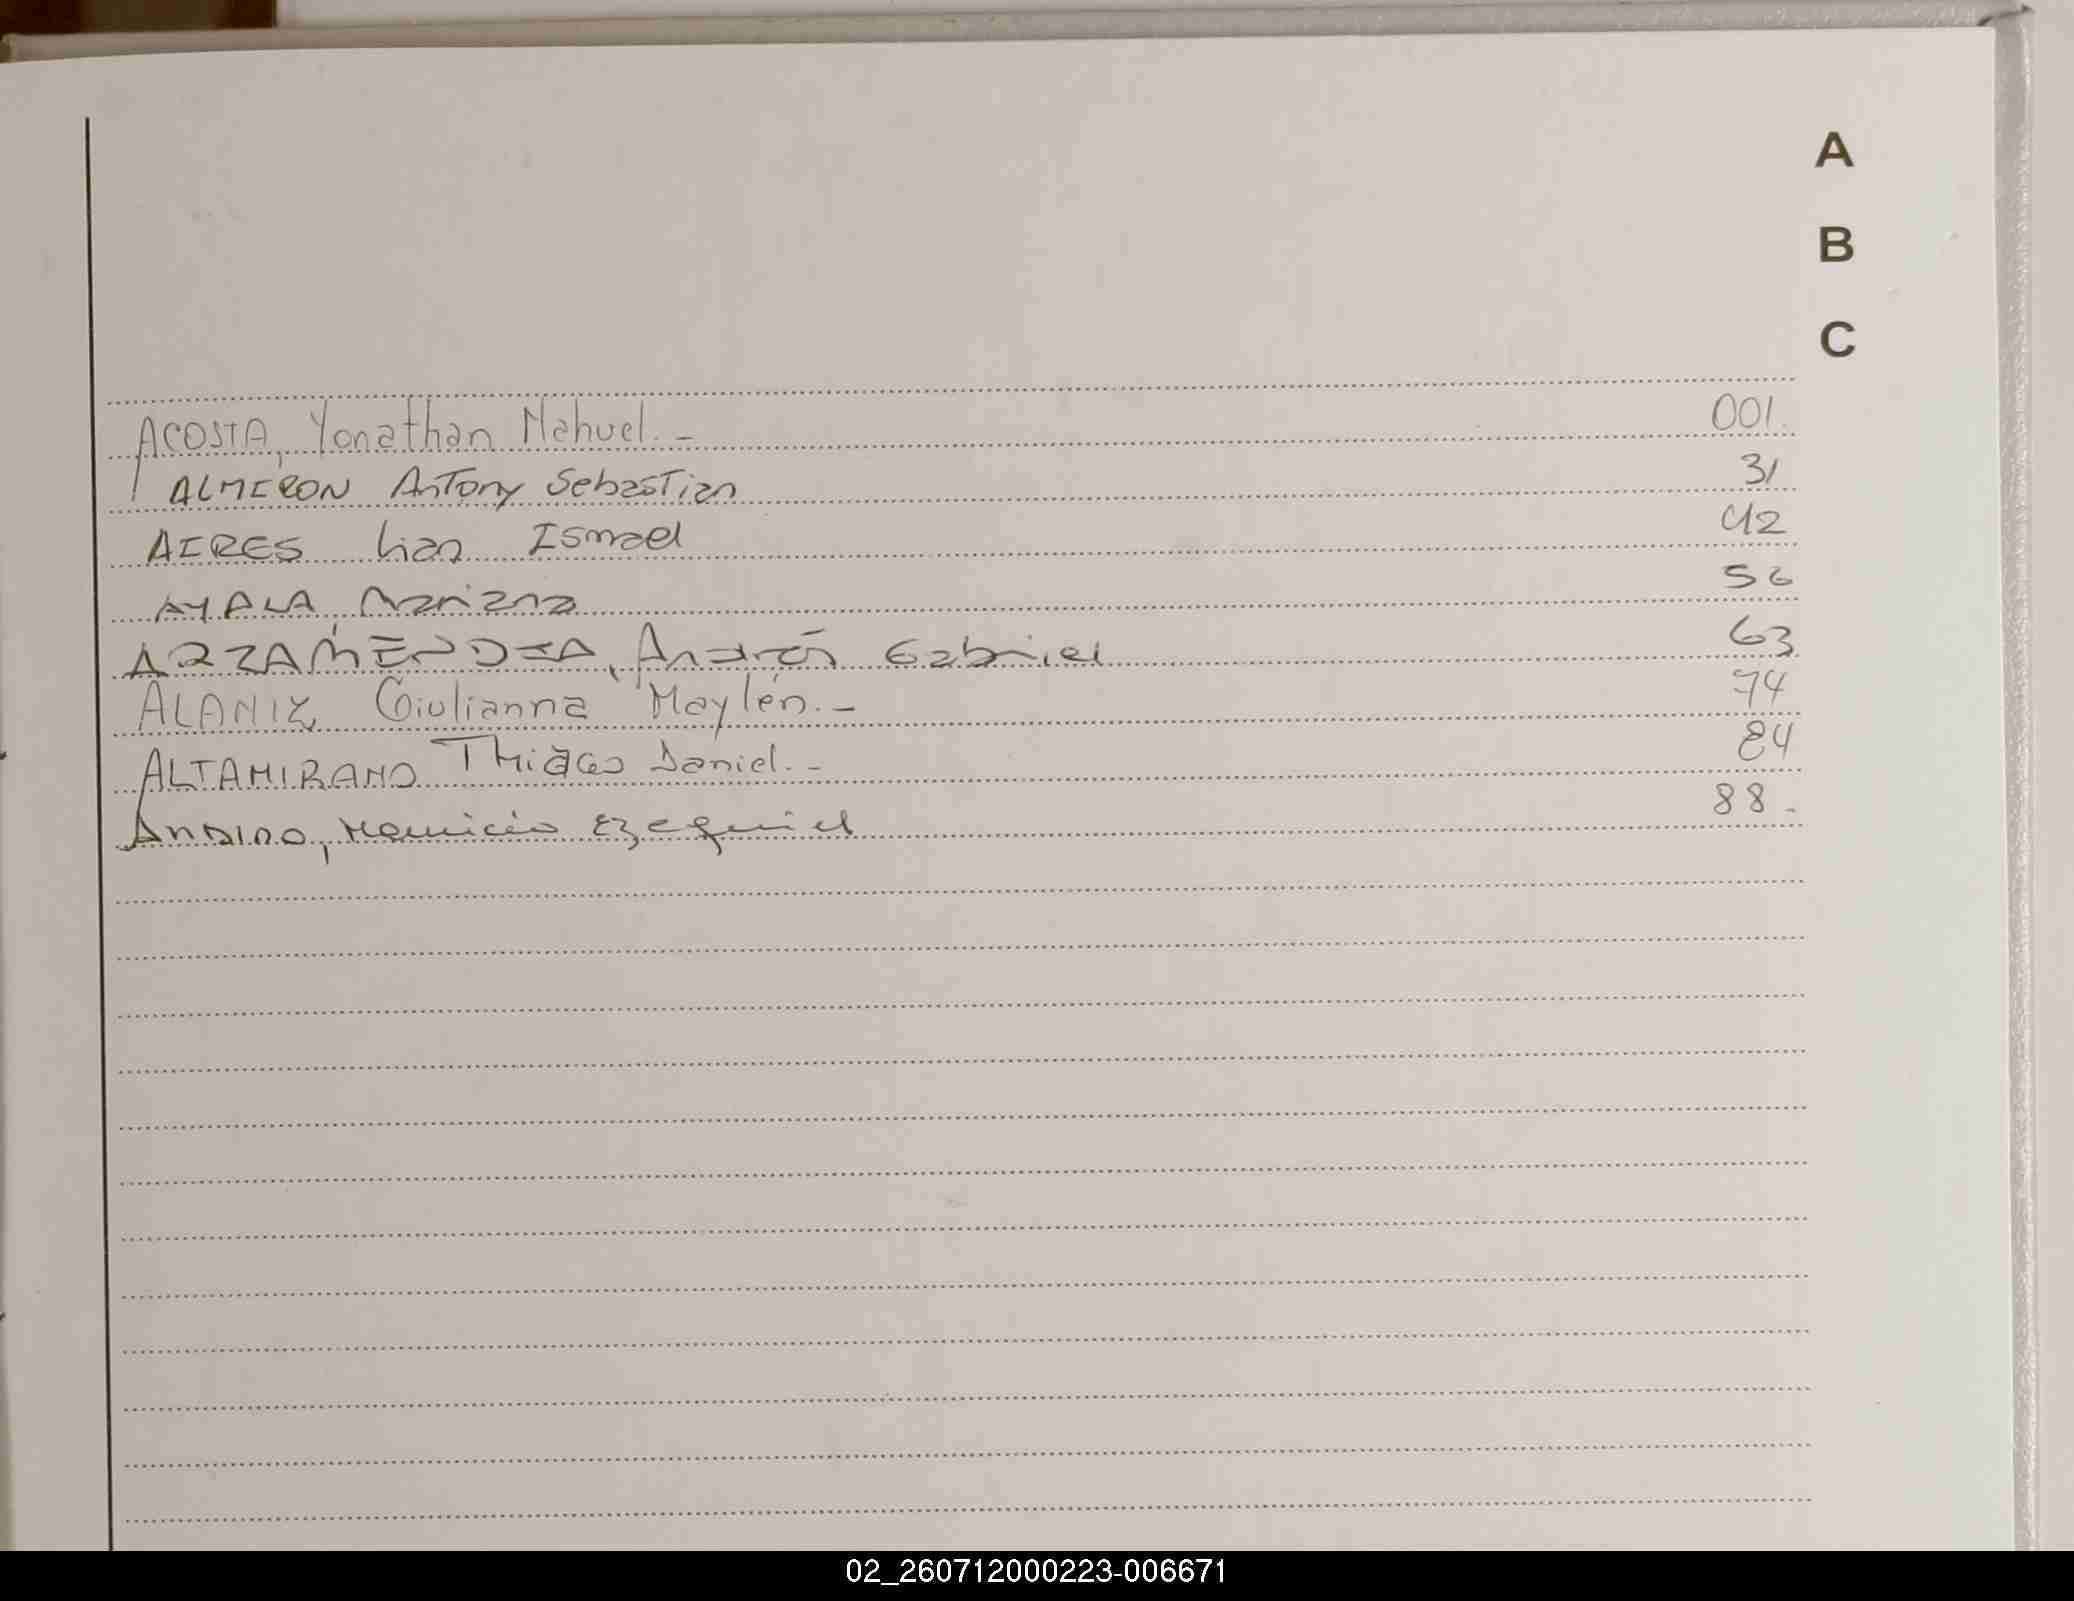 A
B
C
ACOSTA, Yonathan Nahuel.- 001.
ALMERON Antony Sebastian 31
AIRES Lian Ismael 42
AYALA, Mariana 56
ARZAMENDIA, Andrés Gabriel 63
ALANIZ Giulianna Maylén.- 74
ALTAMIRANO Thiago Daniel.- 84
ANDINO, Mauricio Ezequiel 88.
02_260712000223-006671